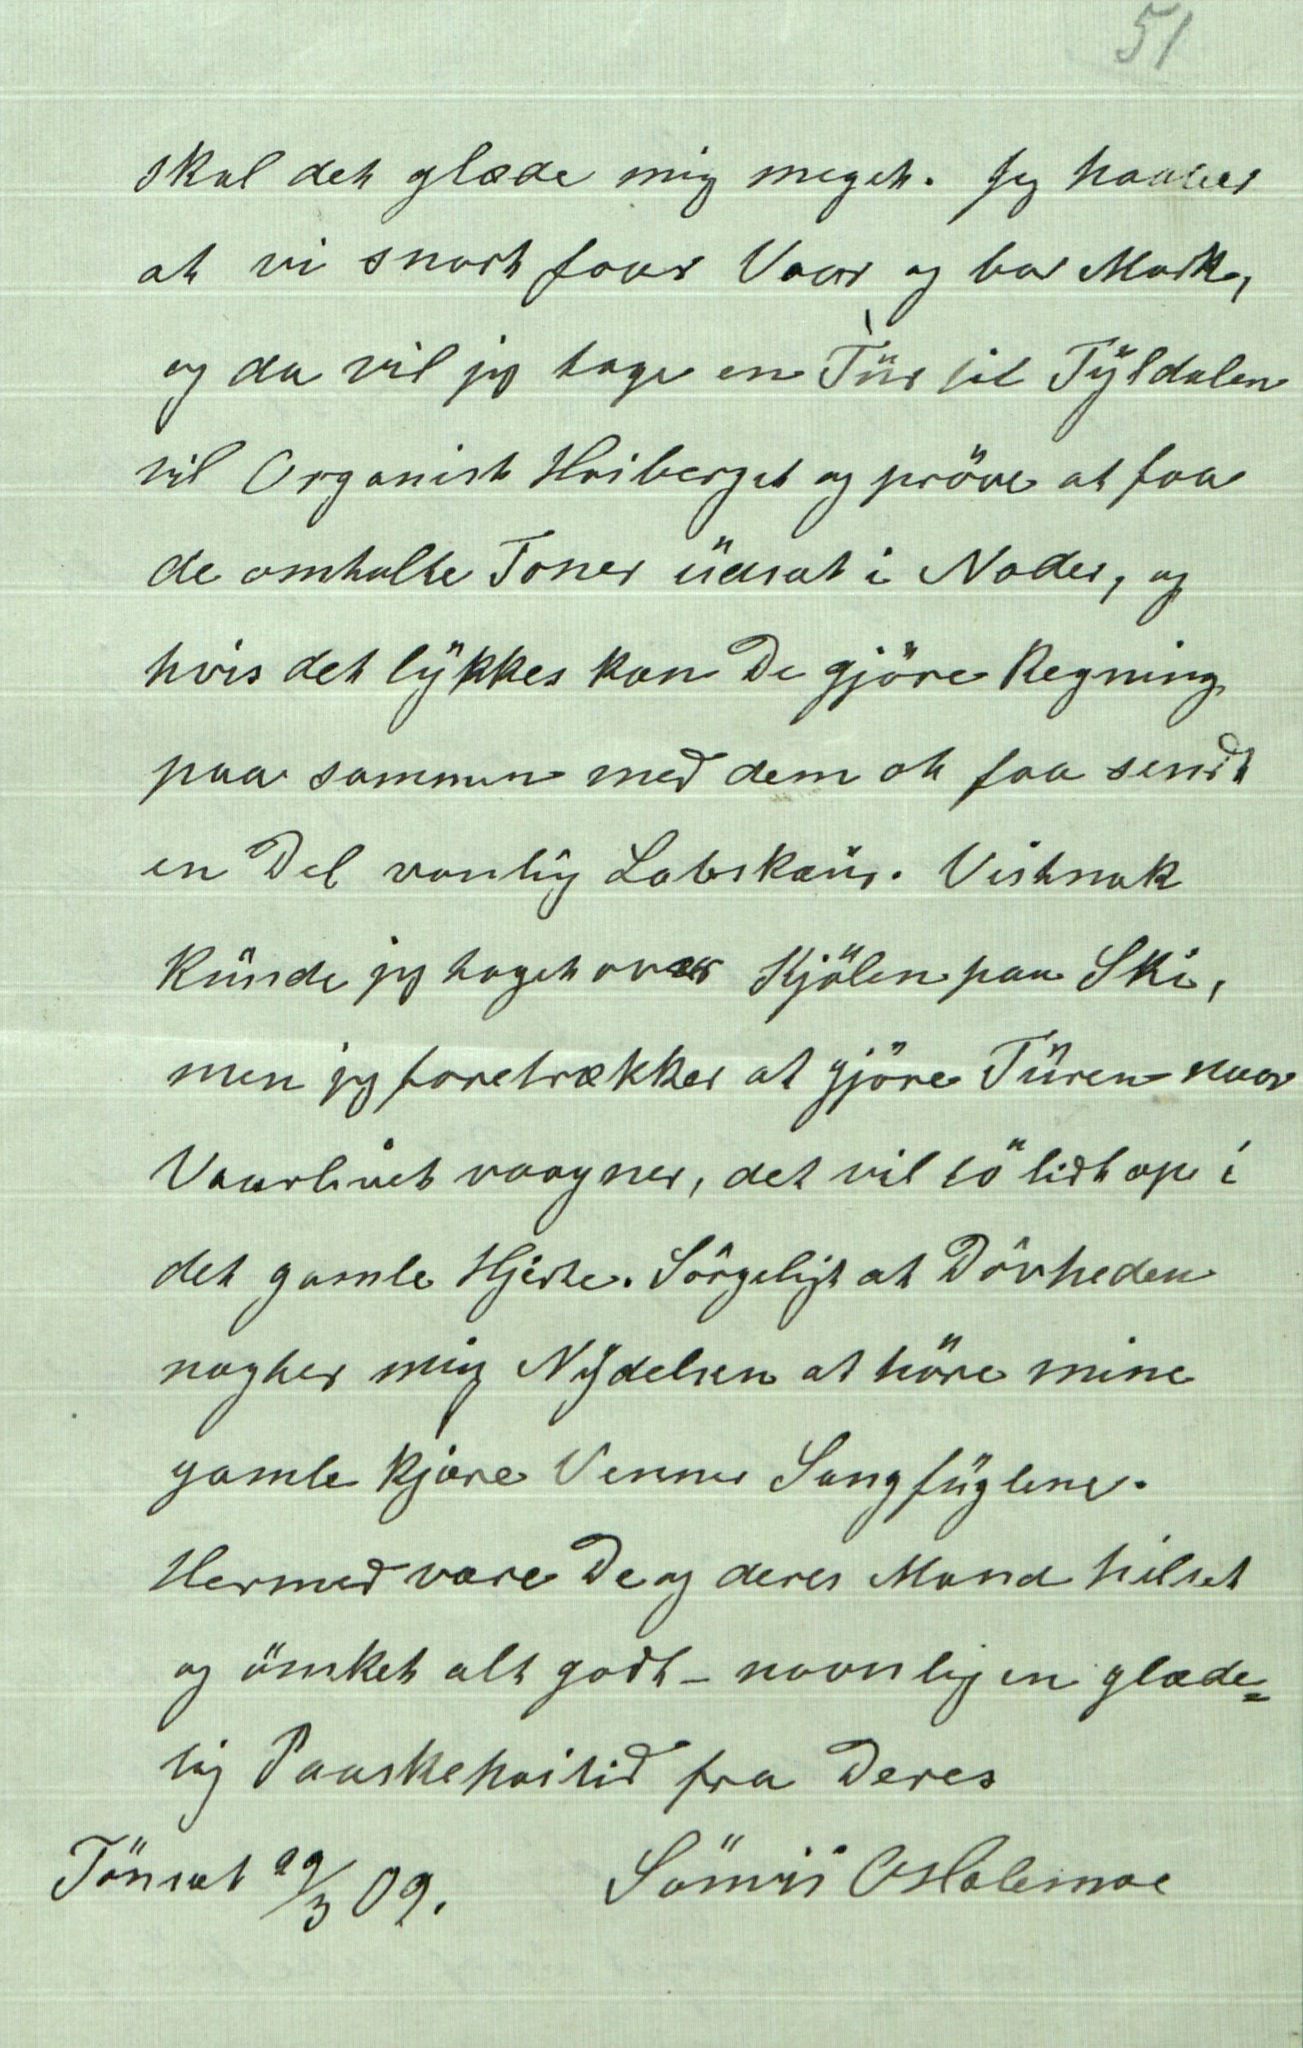 51
skal det glæde mig meget. Jeg haaber
at vi snart faar Vaar og bar Mark,
og da vil jeg tage en Tür til Tÿldalen
til Organist Hoiberget og pröve at faa
de omtalte Toner üdsat i Noder, og
hvis det lÿkkes kan De gjöre Regning
paa sammen med dem at faa sendt
en Del vanlig Labskaüs. Vistnok
künde jeg taget over Kjölen paa Ski,
men jeg foretrækker at gjöre Türen naar
Vaarlivet vaagner, det vil tö lidt op i
det gamle Hjerte. Sörgeligt at Dövheden
nægter mig Nÿdelsen at höre mine
gamle kjære Venner Sangfüglene.
Hermed være De og deres Mand hilset
og önsket alt godt – navnlig en glæde=
lig Paaskehøitid fra Deres
Tönset 29/3 09. Sömis OHolemoe